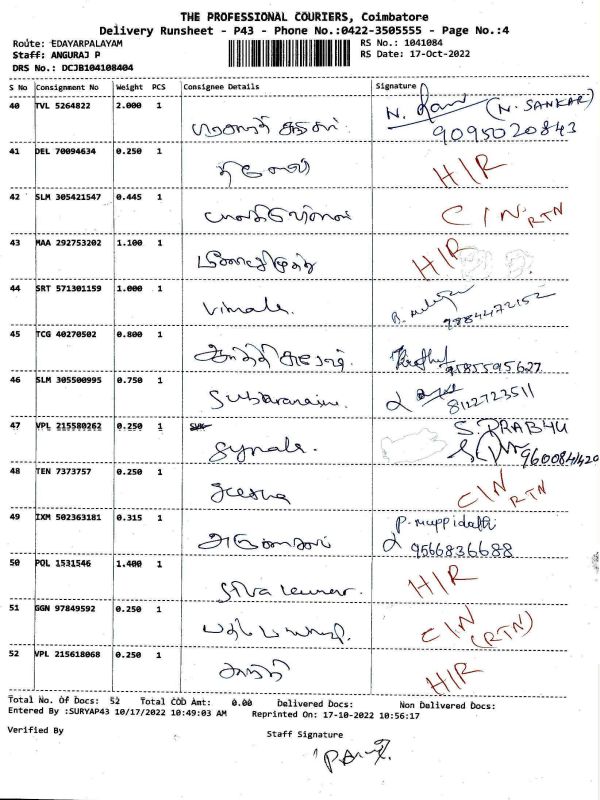 THE PROFESSIONAL COURIERS, Coimbatore
Delivery Runsheet - P43 - Phone No.:0422-3505555 - Page No.:4
Route: EDAYARPALAYAM RS No.: 1041084
Staff: ANGURAJ P RS Date: 17-Oct-2022
DRS No.: DCJB104108404
S No Consignment No Weight PCS Consignee Details Signature
40 TVL 5264822 2.000 1 (N. SANKAR)
9095020843
41 DEL 70094634 0.250 1 H/R
42 SLM 305421547 0.445 1 C/N RTN
43 MAA 292753202 1.100 1 H/R
44 SRT 571301159 1.000 1 Vimala. 9884472152
45 TCG 40270502 0.800 1 9585595627
46 SLM 305500995 0.750 1 8112723511
47 VPL 215580262 0.250 1 S. PRABHU
9600841420
48 TEN 7373757 0.250 1 C/N RTN
49 IXM 502363181 0.315 1 P. Muppidathi
9566836688
50 POL 1531546 1.400 1 Siva kumar. H/R
51 GGN 97849592 0.250 1 C/N (RTN)
52 VPL 215618068 0.250 1 H/R
Total No. Of Docs: 52 Total COD Amt: 0.00 Delivered Docs: Non Delivered Docs:
Entered By :SURYAP43 10/17/2022 10:49:03 AM Reprinted On: 17-10-2022 10:56:17
Verified By Staff Signature